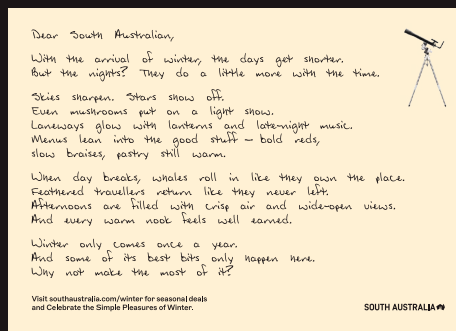 Dear South Australian,
With the arrival of winter, the days get shorter.
But the nights? They do a little more with the time.
Skies sharpen. Stars show off.
Even mushrooms put on a light show.
Laneways glow with lanterns and late-night music.
Menus lean into the good stuff – bold reds,
slow braises, pastry still warm.
When day breaks, whales roll in like they own the place.
Feathered travellers return like they never left.
Afternoons are filled with crisp air and wide-open views.
And every warm nook feels well earned.
Winter only comes once a year.
And some of its best bits only happen here.
Why not make the most of it?
Visit southaustralia.com/winter for seasonal deals
and Celebrate the Simple Pleasures of Winter.
SOUTH AUSTRALIA